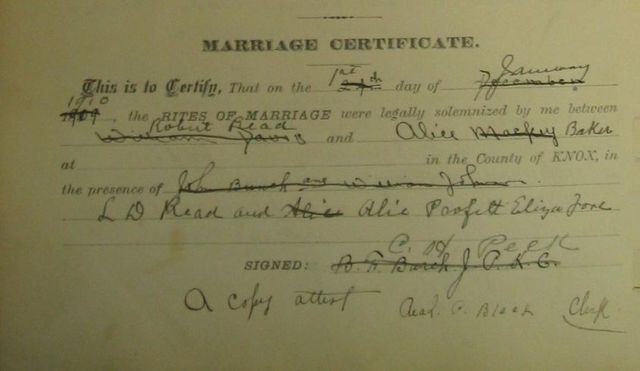 MARRIAGE CERTIFICATE.
This is to Certify, That on the 1st 24th day of January December
1910 1909, the RITES OF MARRIAGE were legally solemnized by me between
Robert Read William Davis and Alice Mackey Baker
at in the County of KNOX, in
the presence of John Bunch and William Johnson
L D Read and Alice Alic Profitt Eliza Fore
C. H Peek
SIGNED: B. F. Burch J. P. K. C.
A copy attest Read. P. Black Clerk